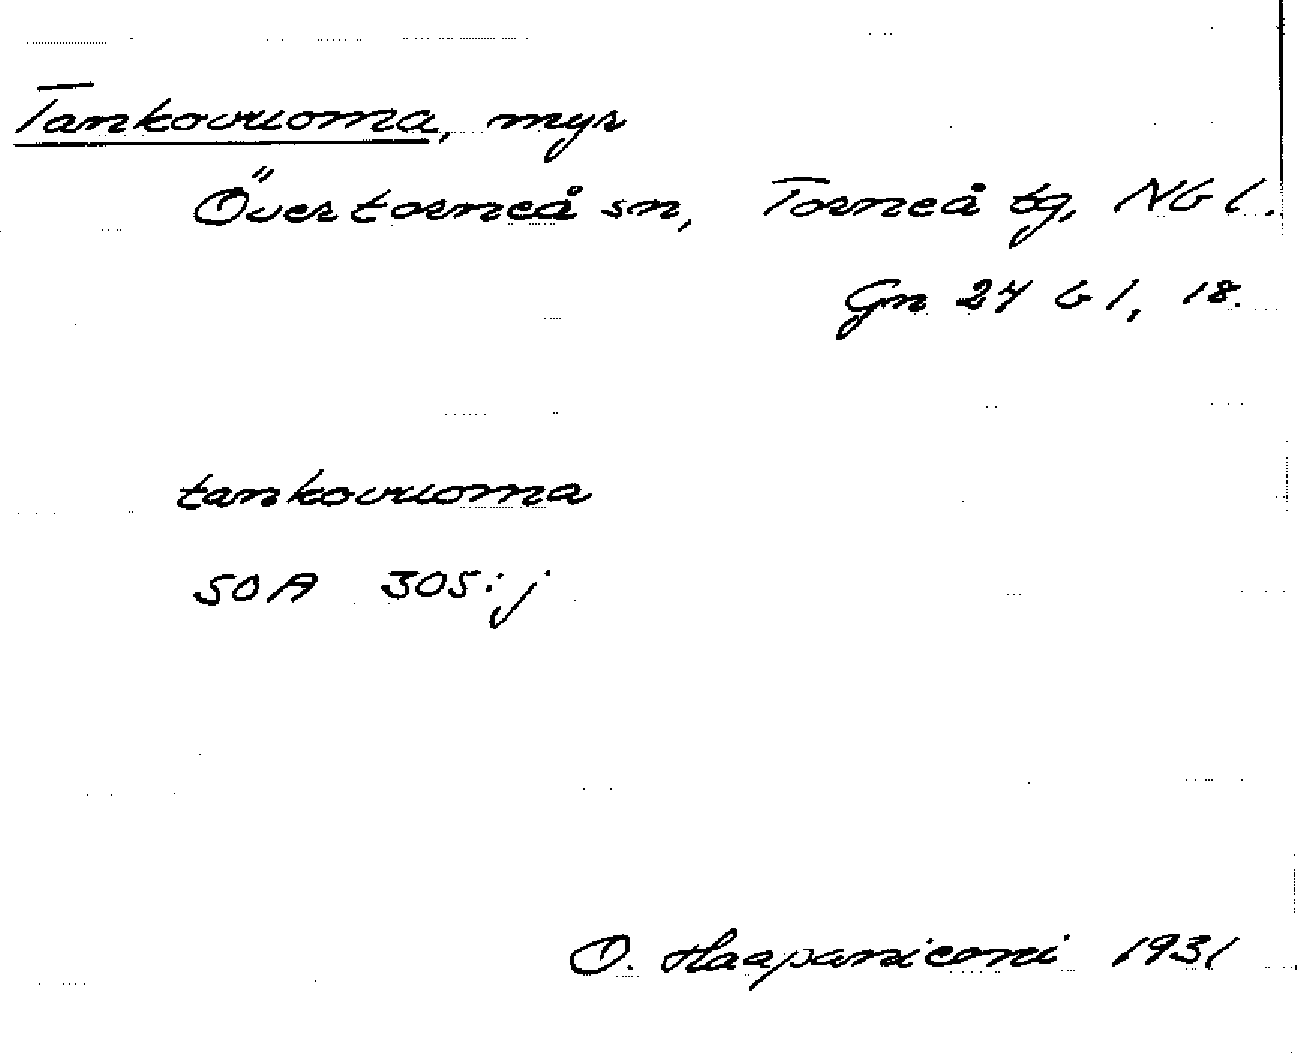 Tankovuoma, myr
Övertorneå sn, Torneå tg, Nb l.
Gn 24 b 1, 18.
tankovuoma
SOA 305:j
O. Haapaniemi 1931